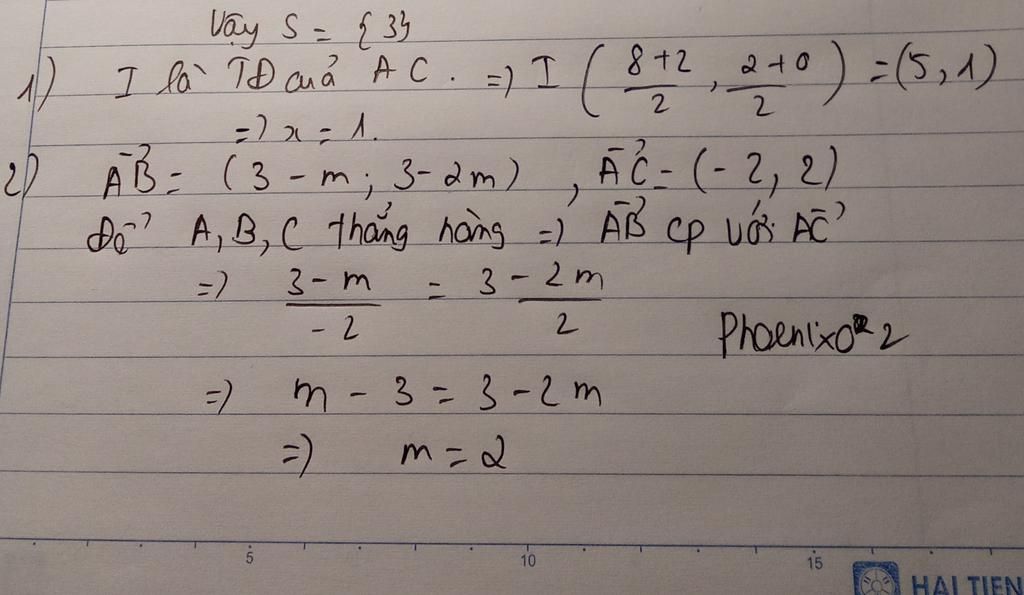 Vậy S = {3}
1) I là TĐ của AC. => I ( 8+2/2 , 2+0/2 ) = (5, 1)
=> x = 1.
2) AB→ = (3 - m; 3-2m) , AC→ = (-2, 2)
Để A, B, C thẳng hàng => AB→ cp với AC→
=> 3 - m / -2 = 3 - 2m / 2
Phoenix02
=> m - 3 = 3 - 2m
=> m = 2
5 10 15
HAI TIEN